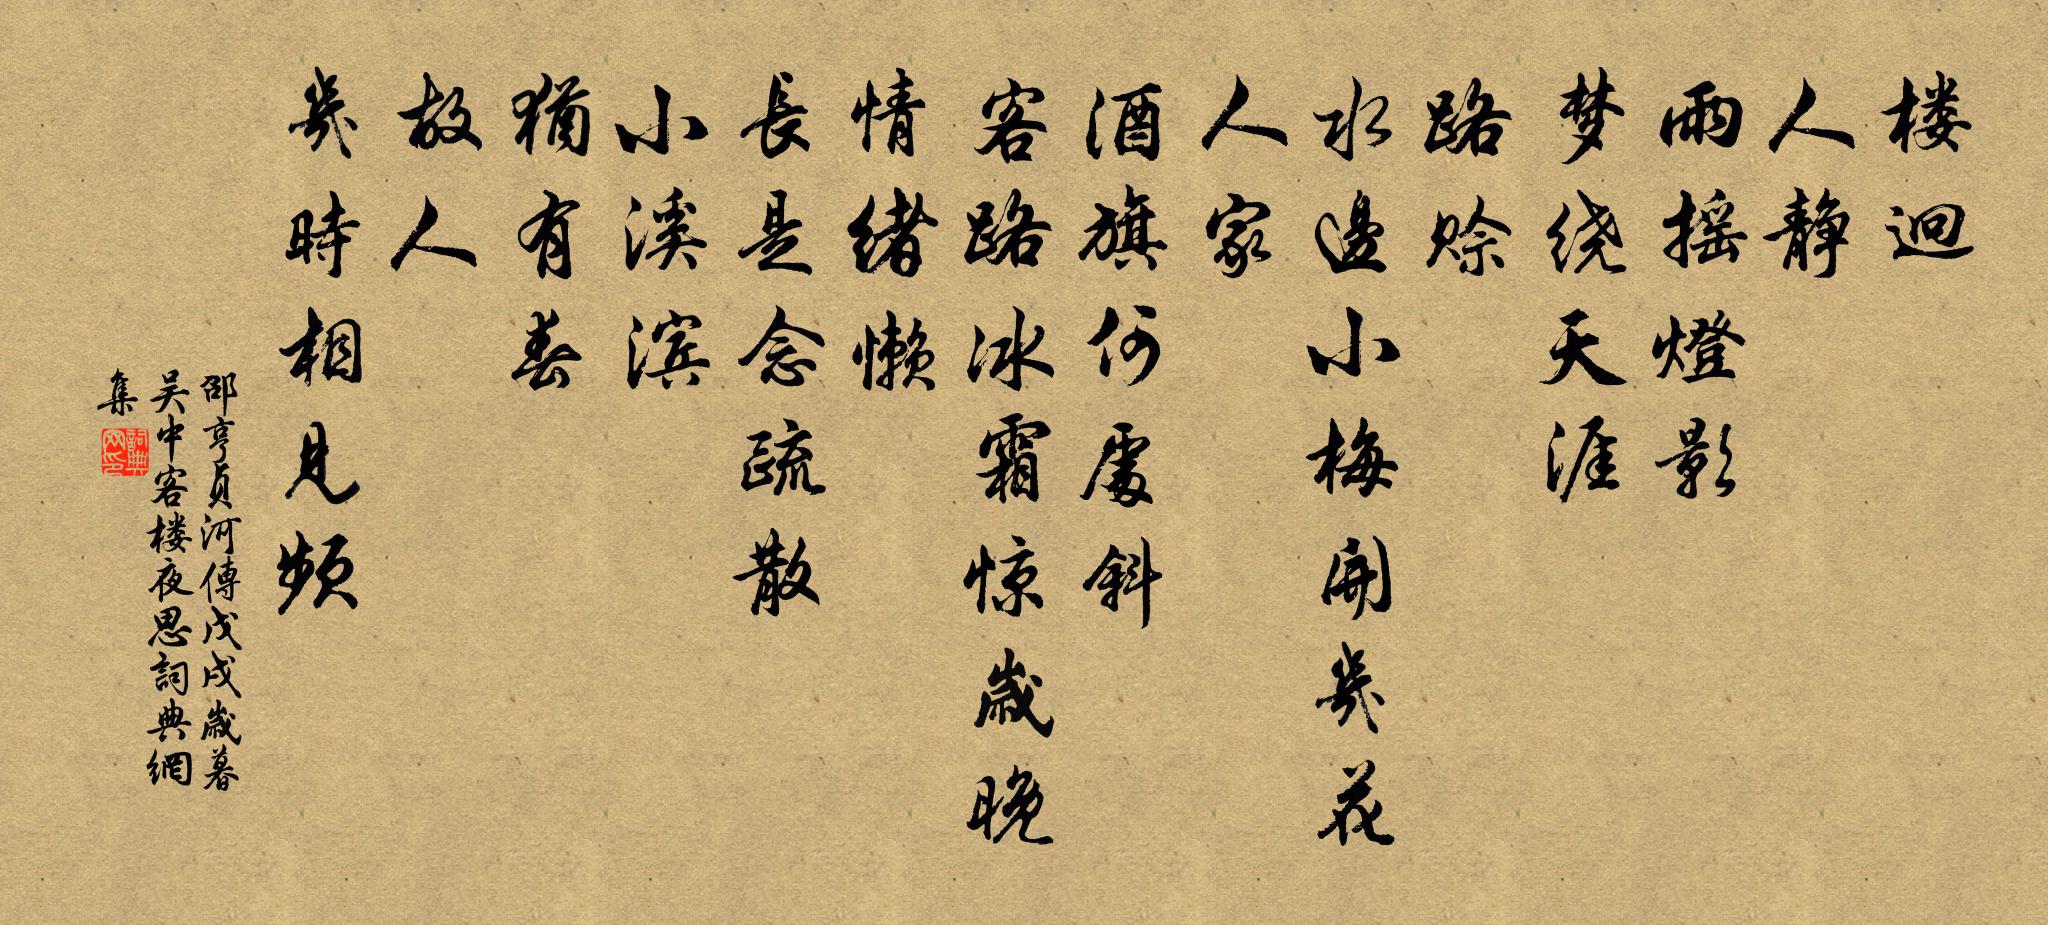 楼迥
人静
雨摇燈影
梦绕天涯
路赊
水邊小梅開幾花
人家
酒旗何處斜
客路冰霜惊歲晚
情绪懒
長是念疏散
小溪滨
猶有春
故人
幾時相見频
邵亨貞河傳戊戌歲暮
吴中客楼夜思詞典網
集
詞典
网印